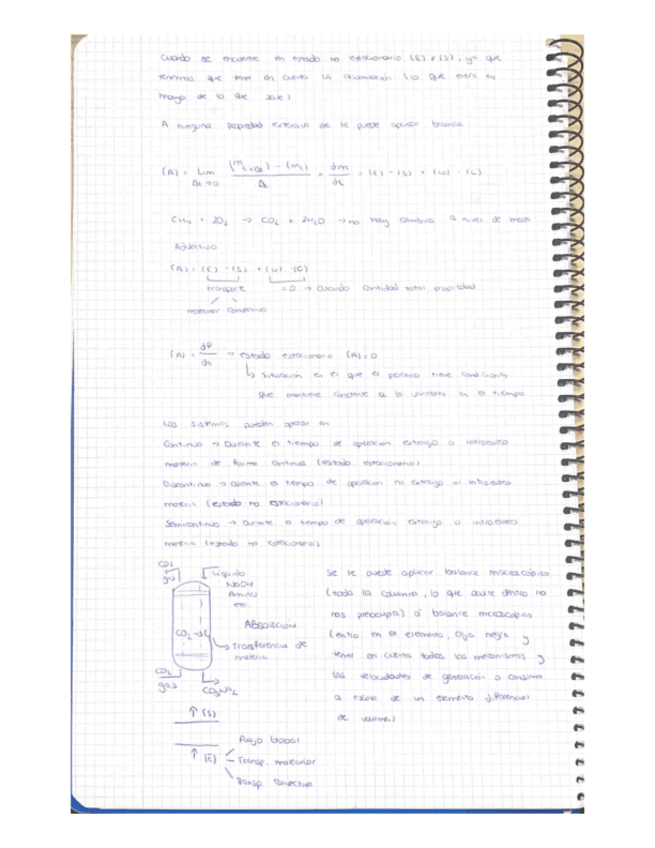 Cuando se encuentre en estado no estacionario (E) ≠ (S), ya que
tenemos que tener en cuenta la acumulación (lo que entra es
mayor de lo que sale)
A ninguna propiedad extensiva se le puede aplicar balance
(A) = Lim Δt→0 (m t+Δt) - (m t) / Δt = dm/dt = (E) - (S) + (G) - (C)
CH4 + 2O2 → CO2 + 2H2O → no hay cambios a nivel de masa
(A) = (E) - (S) + (G) - (C)
transporte = 0 → Cuando cantidad total propiedad
molecular convectivo
(A) = dP/dt → estado estacionario (A) = 0
↳ situación en el que el proceso tiene condiciones
que mantiene constante a lo largo en el tiempo
Los sistemas pueden operar en
Continuo → Durante el tiempo de operación extraigo o introduzco
materia de forma continua (estado estacionario)
Discontinuo → Durante el tiempo de operación ni extraigo ni introduzco
materia (estado no estacionario)
Semicontinuo → Durante el tiempo de operación extraigo o introduzco
materia (estado no estacionario)
CO2
gas
Líquido
NaOH
Aminas
etc.
ABSORCION
CO2 → L
Transferencia de
materia
CO2
gas
CO3Na2
↑ (S)
↑ (E)
Flujo Global
Transp. molecular
Transp. convectivo
Se le puede aplicar balance macroscópico
(toda la columna, lo que ocurre dentro no
nos preocupa) ó balance microscópico
(entro en el elemento, caja negra y
tener en cuenta todos los mecanismos y
las velocidades de generación o consumo
a escala de un elemento diferencial
de volumen)